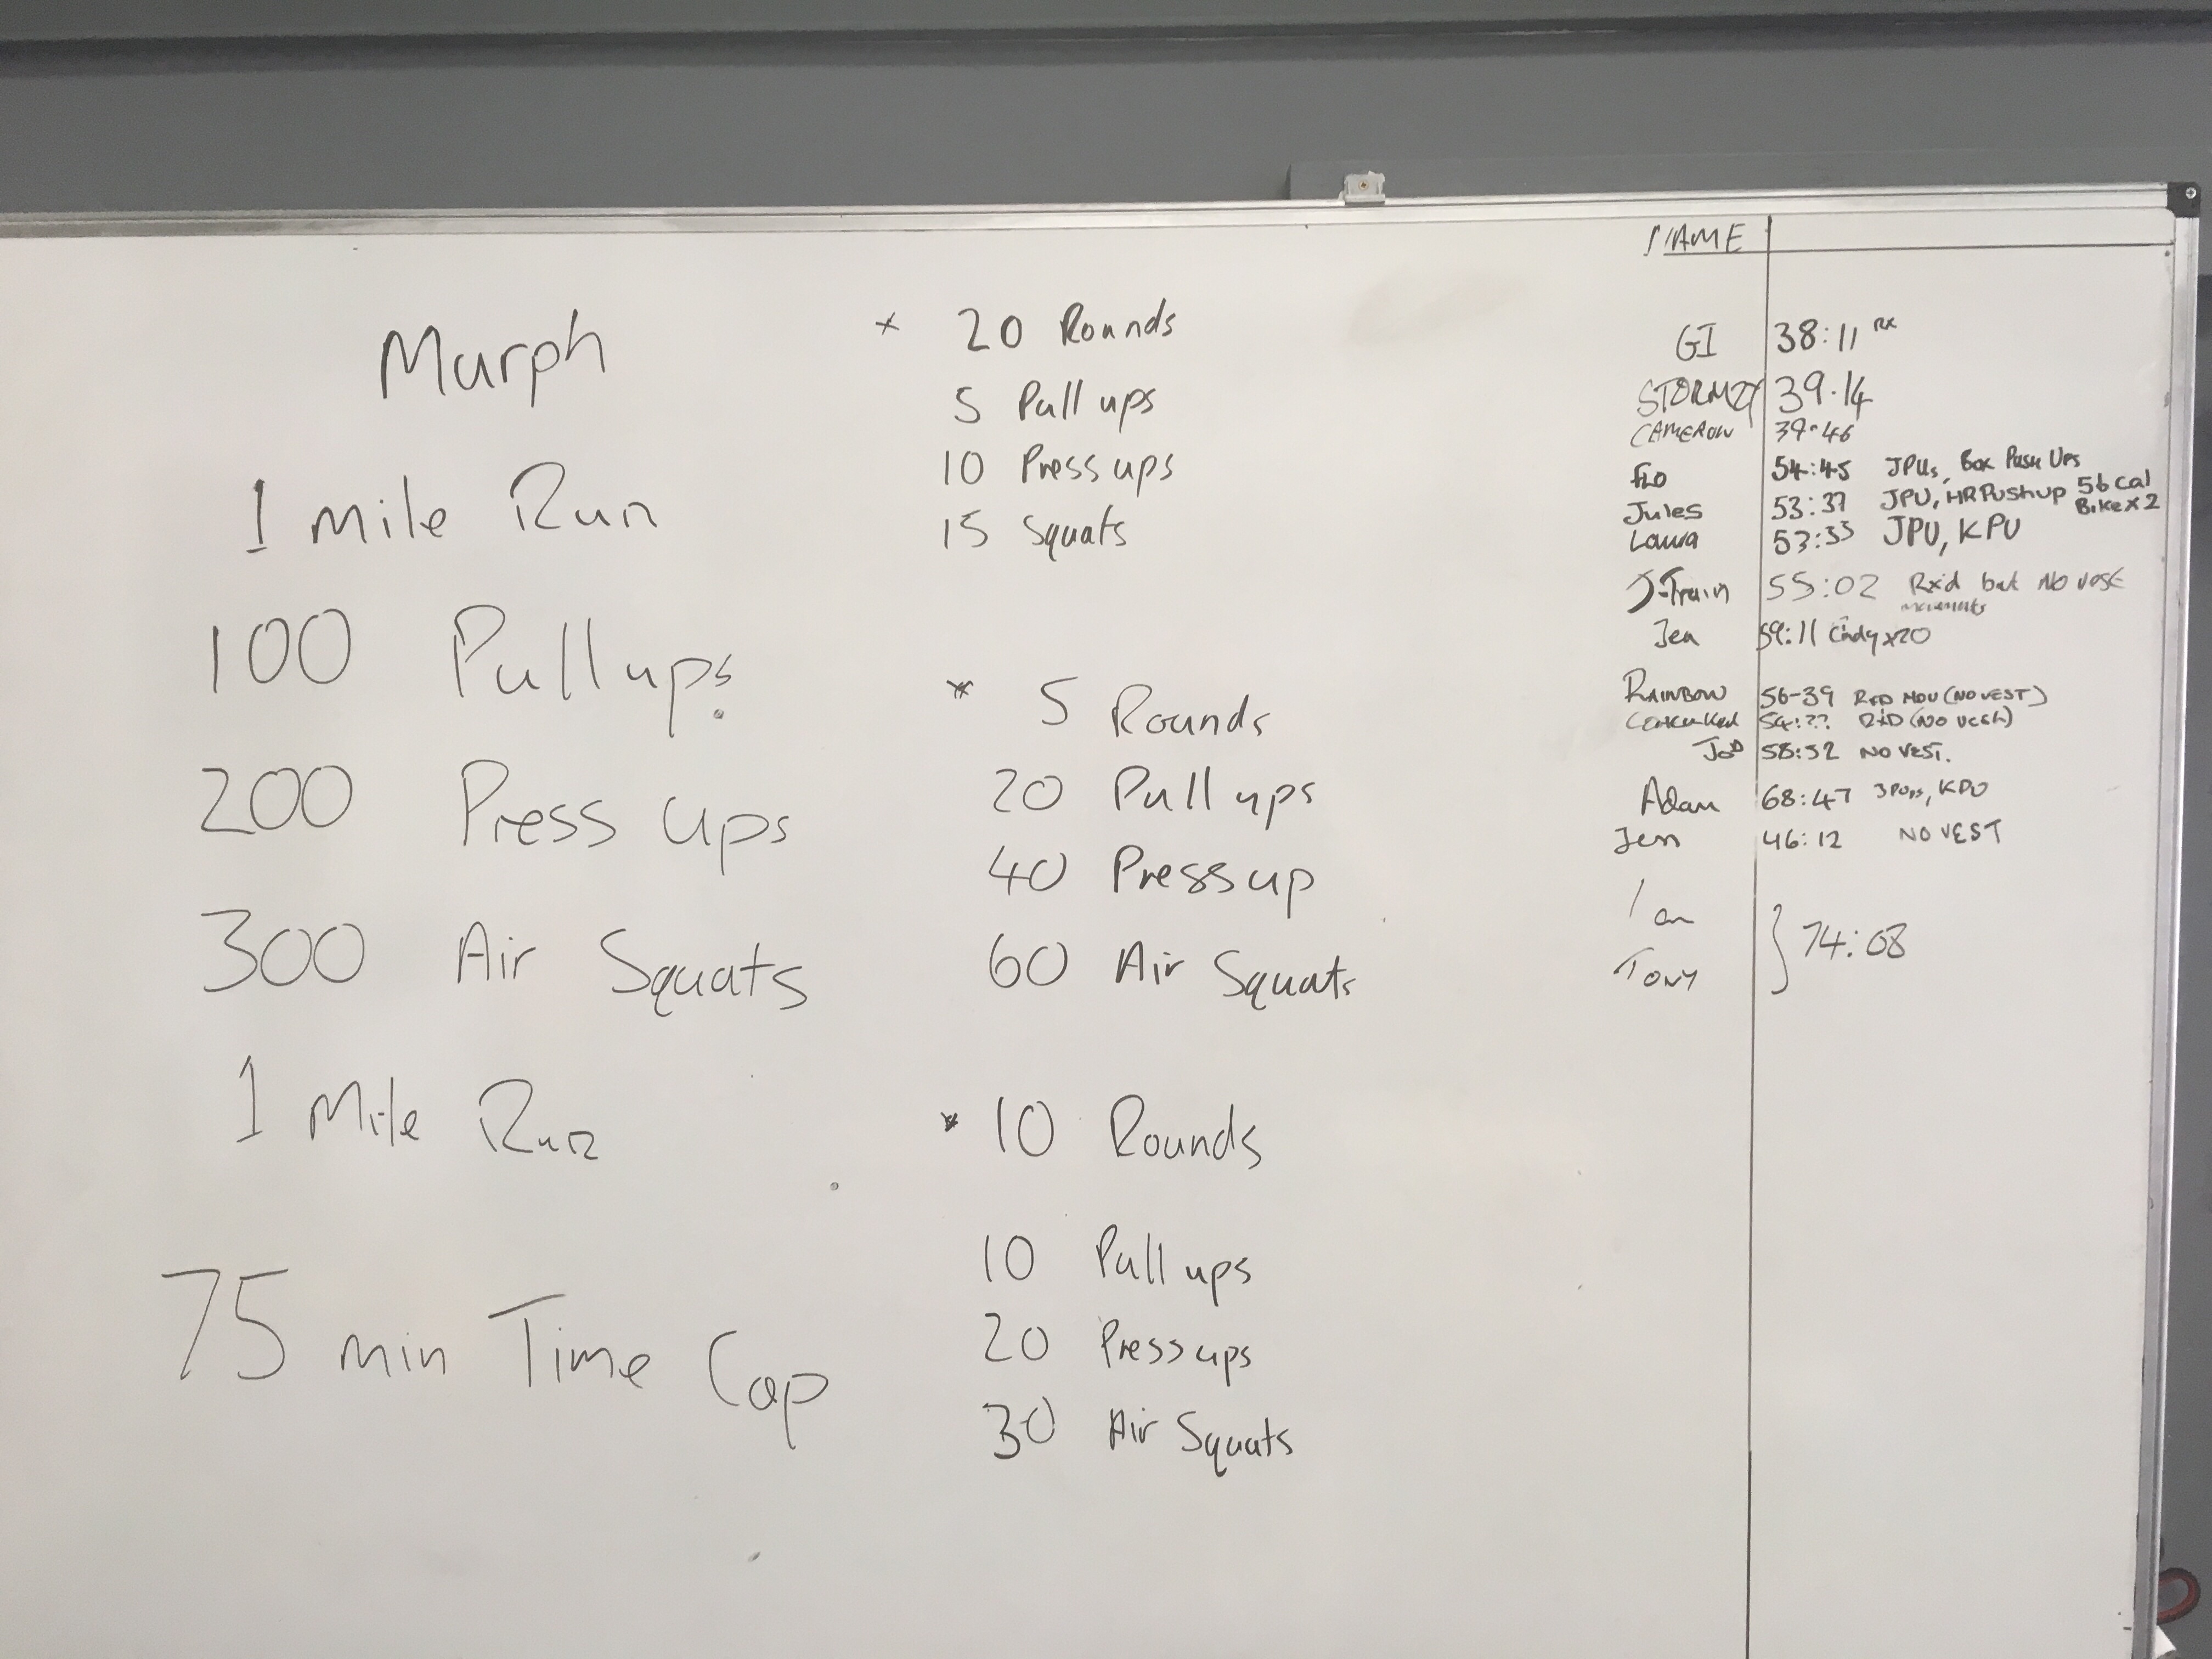 Murph
1 Mile Run
100 Pull ups
200 Press ups
300 Air Squats
1 Mile Run
75 min Time Cap
* 20 Rounds
5 Pull ups
10 Press ups
15 Squats
* 5 Rounds
20 Pull ups
40 Press up
60 Air Squats
* 10 Rounds
10 Pull ups
20 Press ups
30 Air Squats
NAME
GI 38:11 RX
STORMZY 39.14
CAMERON 39.46
FLO 54:45 JPUs, Box Push Ups
Jules 53:37 JPU, HR Pushup 56 cal Bike x 2
Laura 53:33 JPU, KPU
J-Train 55:02 Rx'd but No vest
movements
Jen 59:11 Cindy x20
RAINBOW 56-39 RXD MOV (NO VEST)
54:?? RXD (NO VEST)
58:52 NO VEST.
Adam 68:47 KPU
Jen 46:12 NO VEST
Ian
TONY } 74:08